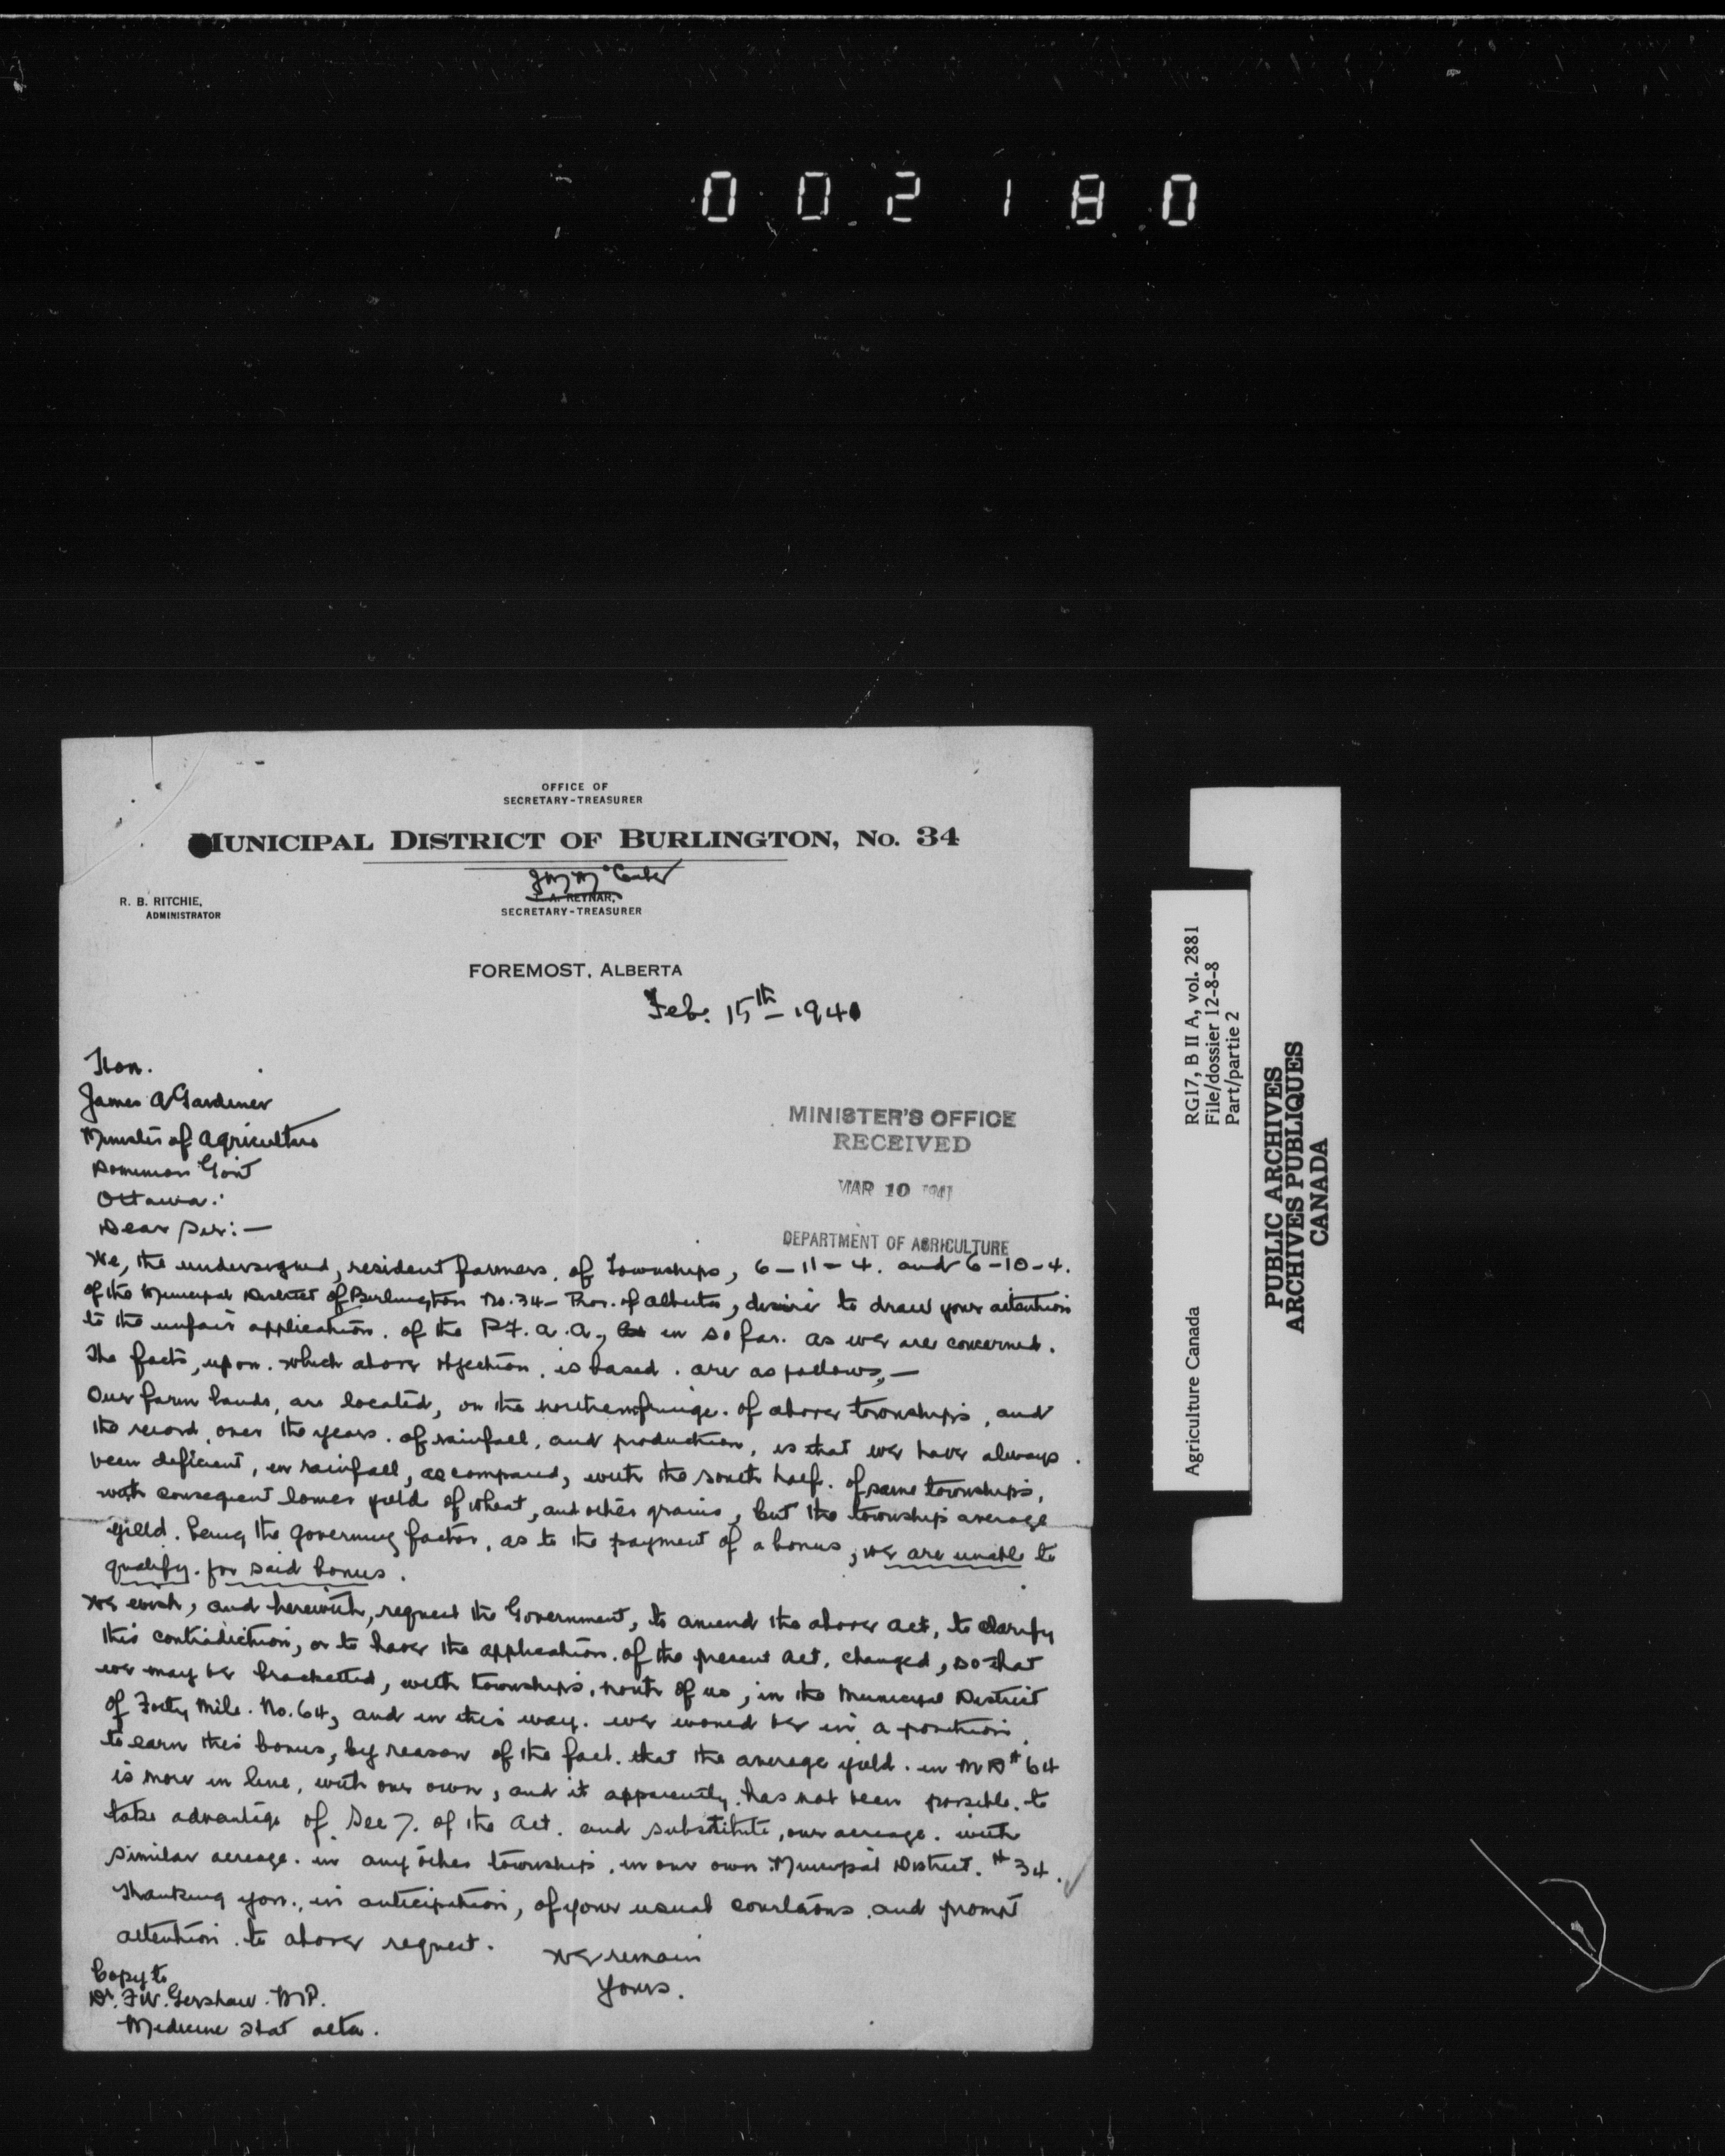 002180
OFFICE OF
SECRETARY-TREASURER
MUNICIPAL DISTRICT OF BURLINGTON, No. 34
R. B. RITCHIE,
ADMINISTRATOR
A. REYNAR,
SECRETARY-TREASURER
FOREMOST, ALBERTA
Feb. 15th - 1941
Hon.
James A Gardener
Minister of Agriculture
Dominion Gov't
Ottawa.
Dear Sir:—
MINISTER'S OFFICE
RECEIVED
MAR 10 1941
DEPARTMENT OF AGRICULTURE
We, the undersigned, resident farmers, of Townships, 6-11-4. and 6-10-4.
of the Municipal District of Burlington No. 34- Prov. of Alberta, desire to draw your attention
to the unfair application. of the P.F.A.A., in so far. as we are concerned.
The facts, upon. which above objection, is based. are as follows,—
Our farm lands, are located, on the northern fringe. of above townships, and
the record, over the years. of rainfall, and production, is that we have always.
been deficient, in rainfall, as compared, with the south half. of same townships,
with consequent lower yield of wheat, and other grains, but the township average
yield. being the governing factor, as to the payment of a bonus, we are unable to
qualify. for said bonus.
We wish, and herewith, request the Government, to amend the above Act, to clarify
this contradiction, or to have the application. of the present Act, changed, so that
we may be bracketted, with townships, north of us, in the Municipal District
of Forty Mile. No. 64, and in this way. we would be in a position,
to earn this bonus, by reason of the fact. that the average yield. in M D # 64
is more in line, with our own, and it apparently. has not been possible. to
take advantage of Sec 7. of the Act. and substitute, our acreage. with
similar acreage. in any other township, in our own Municipal District. # 34.
Thanking you., in anticipation, of your usual courteous, and prompt
attention. to above request.
We remain
Yours.
Copy to
Dr. F.W. Gershaw. M.P.
Medicine Hat Alta.
Agriculture Canada
RG17, B II A, vol. 2881
File/dossier 12-8-8
Part/partie 2
PUBLIC ARCHIVES
ARCHIVES PUBLIQUES
CANADA